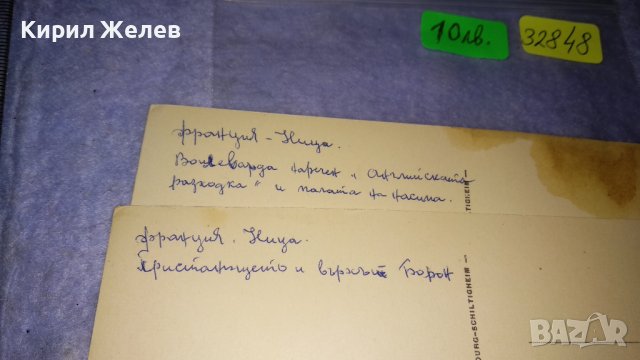 Кирил Желев
10лв.
32848
Франция - Ница.
Булеварда наречен „Английската
разходка“ и палата на касина.
TIGHEIM —
Франция. Ница.
Пристанището и върхът Борон
OURG-SCHILTIGHEIM —
BAZAR